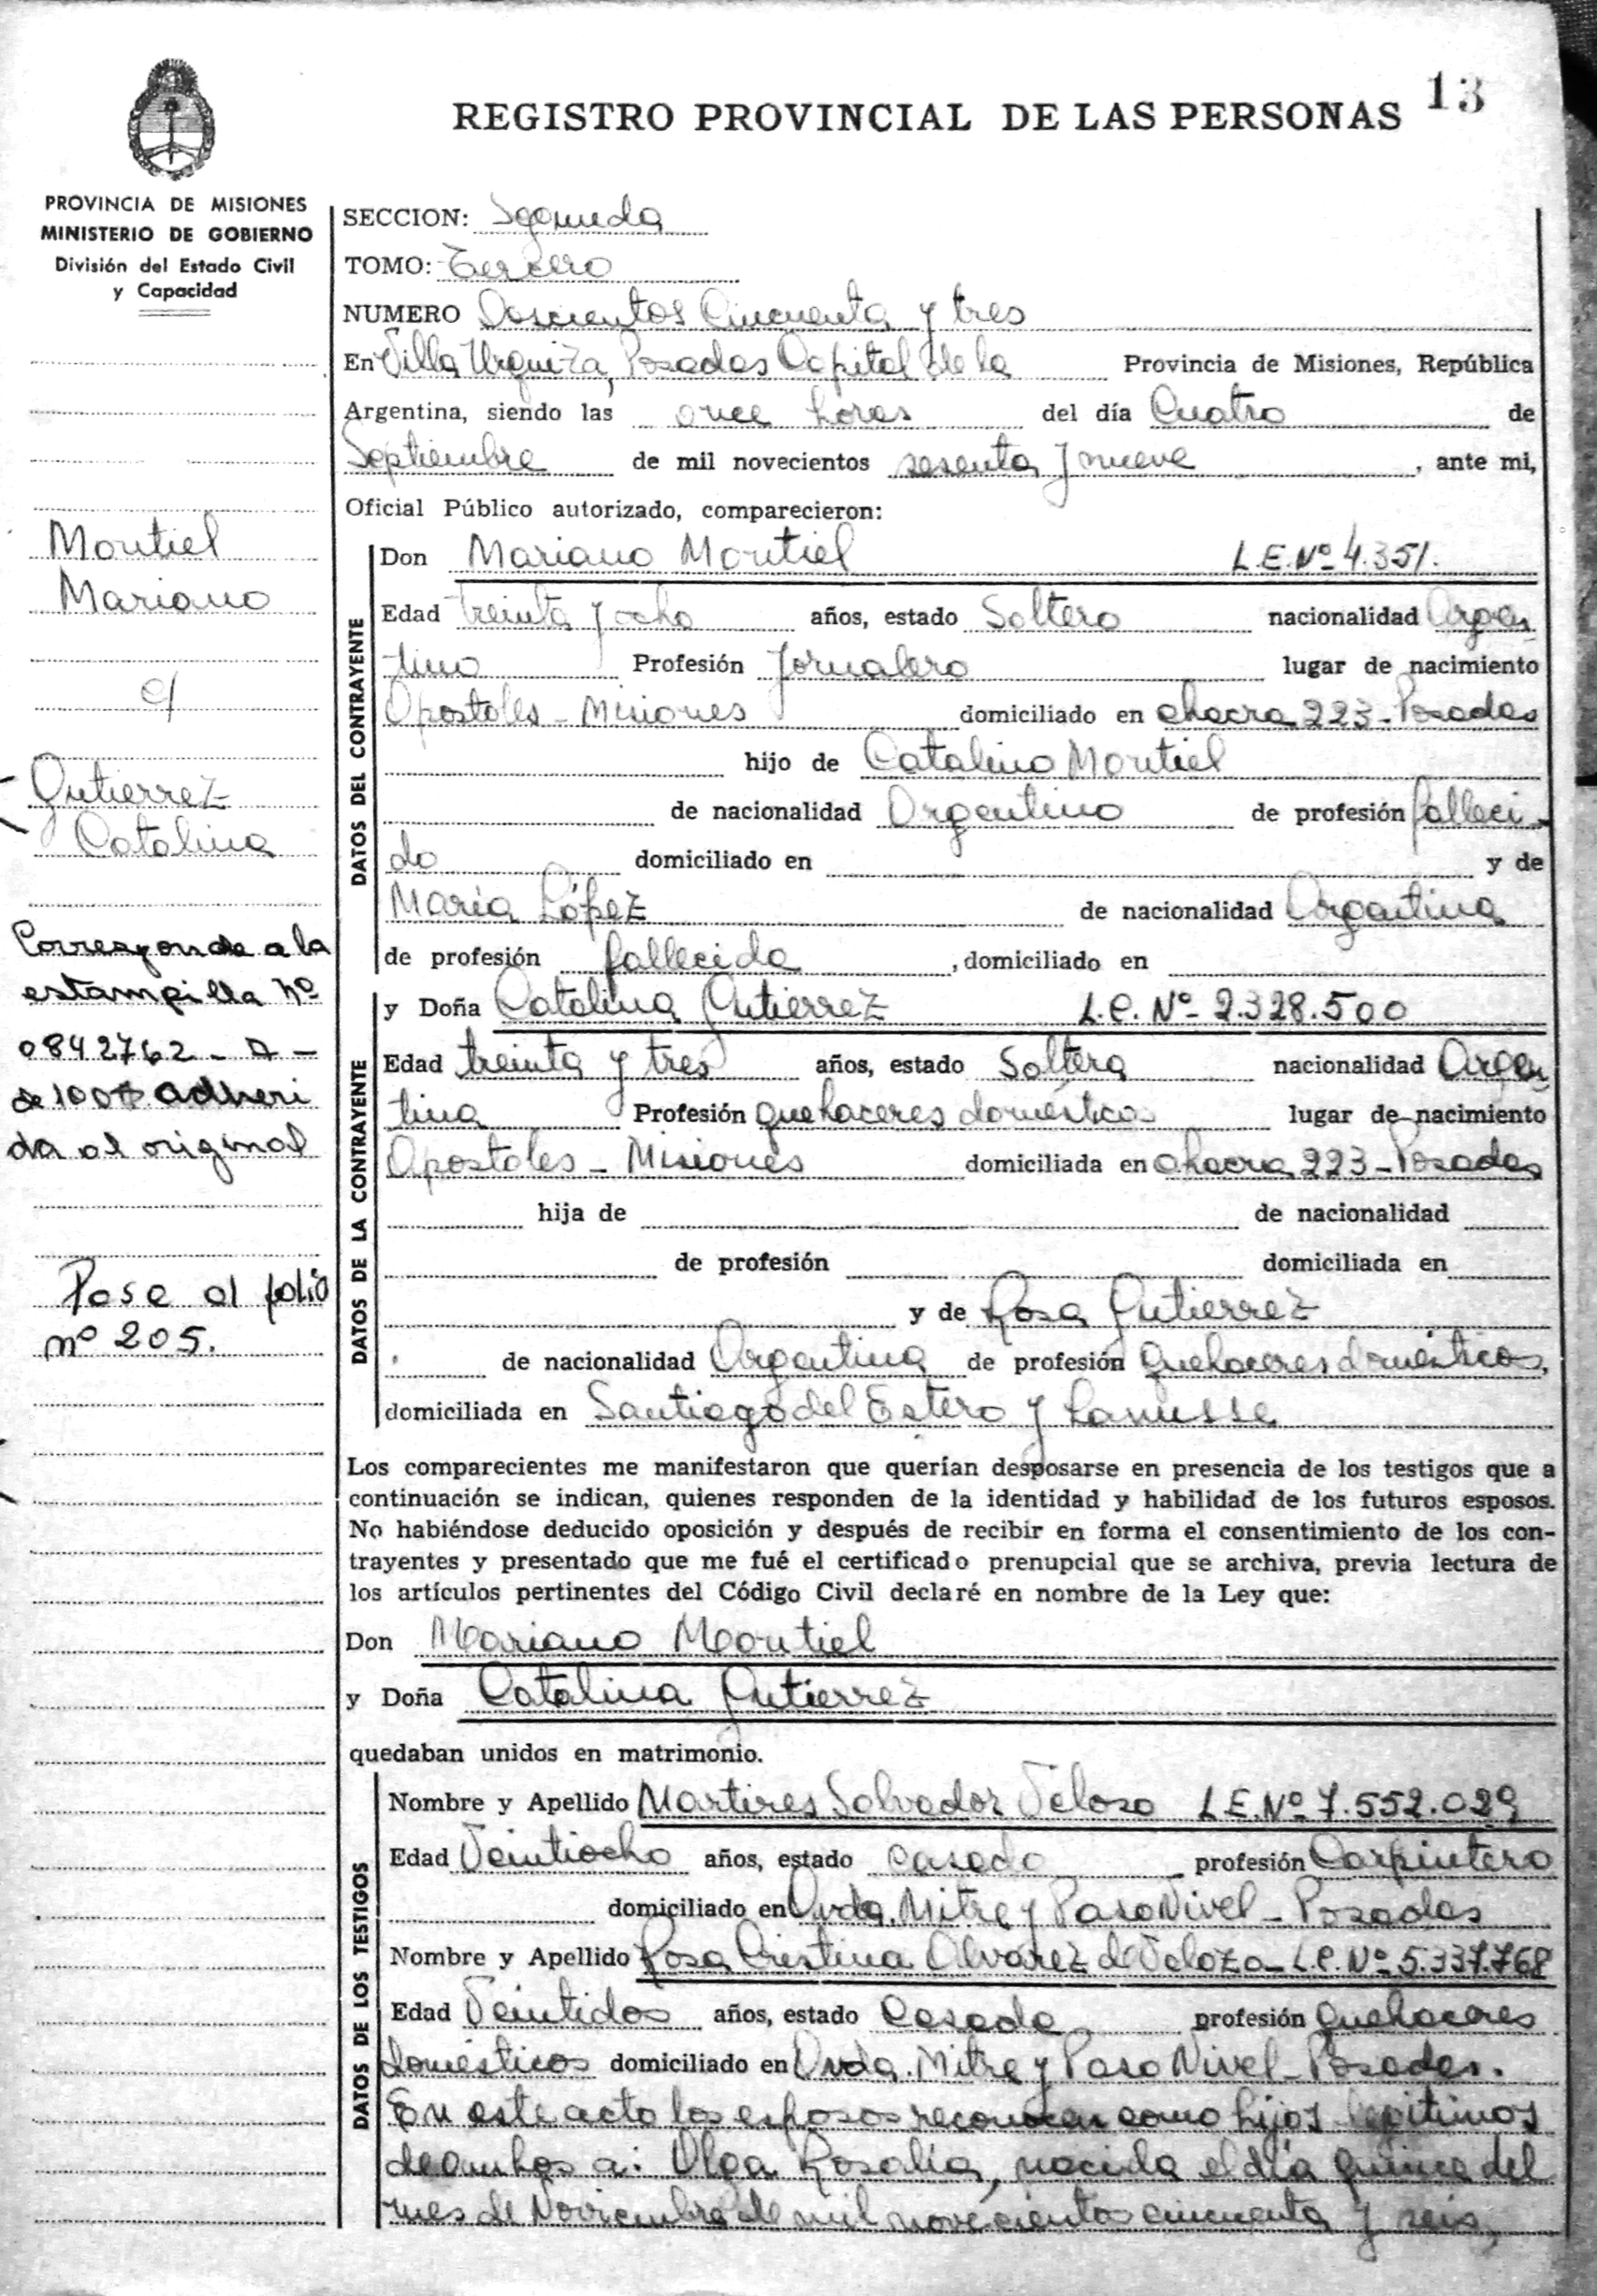 13
REGISTRO PROVINCIAL DE LAS PERSONAS
PROVINCIA DE MISIONES
MINISTERIO DE GOBIERNO
División del Estado Civil
y Capacidad
Montiel
Mariano
c/
Gutierrez
Catalina
Corresponde a la
estampilla nº
0842762 - A -
de 100$ adheri
da al original
Pase al folio
nº 205.
SECCION: Segunda
TOMO: Tercero
NUMERO Doscientos Cincuenta y tres
En Villa Urquiza, Posadas Capital de la Provincia de Misiones, República
Argentina, siendo las once horas del día Cuatro de
Septiembre de mil novecientos sesenta y nueve, ante mi,
Oficial Público autorizado, comparecieron:
DATOS DEL CONTRAYENTE
Don Mariano Montiel L.E.Nº 4.351.
Edad treinta y ocho años, estado Soltero nacionalidad Argen
tino Profesión Jornalero lugar de nacimiento
Apostoles - Misiones domiciliado en chacra 223 - Posadas
hijo de Catalino Montiel
de nacionalidad Argentino de profesión falleci-
do domiciliado en y de
María López de nacionalidad Argentina
de profesión fallecida, domiciliado en
DATOS DE LA CONTRAYENTE
y Doña Catalina Gutierrez L.C. Nº 2.328.500
Edad treinta y tres años, estado Soltera nacionalidad Argen
tina Profesión quehaceres domésticos lugar de nacimiento
Apostoles - Misiones domiciliada en chacra 223 - Posadas
hija de de nacionalidad
de profesión domiciliada en
y de Rosa Gutierrez
de nacionalidad Argentina de profesión quehaceres domésticos,
domiciliada en Santiago del Estero y Lanusse
Los comparecientes me manifestaron que querían desposarse en presencia de los testigos que a
continuación se indican, quienes responden de la identidad y habilidad de los futuros esposos.
No habiéndose deducido oposición y después de recibir en forma el consentimiento de los con-
trayentes y presentado que me fué el certificado prenupcial que se archiva, previa lectura de
los artículos pertinentes del Código Civil declaré en nombre de la Ley que:
Don Mariano Montiel
y Doña Catalina Gutierrez
quedaban unidos en matrimonio.
DATOS DE LOS TESTIGOS
Nombre y Apellido Martires Salvador Velozo L.E.Nº 7.552.029
Edad Veintiocho años, estado casado profesión Carpintero
domiciliado en Avda. Mitre y Paso Nivel - Posadas
Nombre y Apellido Rosa Cristina Alvarez de Velozo - L.C. Nº 5.337.768
Edad Veintidos años, estado Casada profesión quehaceres
domésticos domiciliado en Avda. Mitre y Paso Nivel - Posadas.
En este acto los esposos reconocen como hijos legitimos
de ambos a: Olga Rosalía, nacida el día quince del
mes de Noviembre de mil novecientos cincuenta y seis,